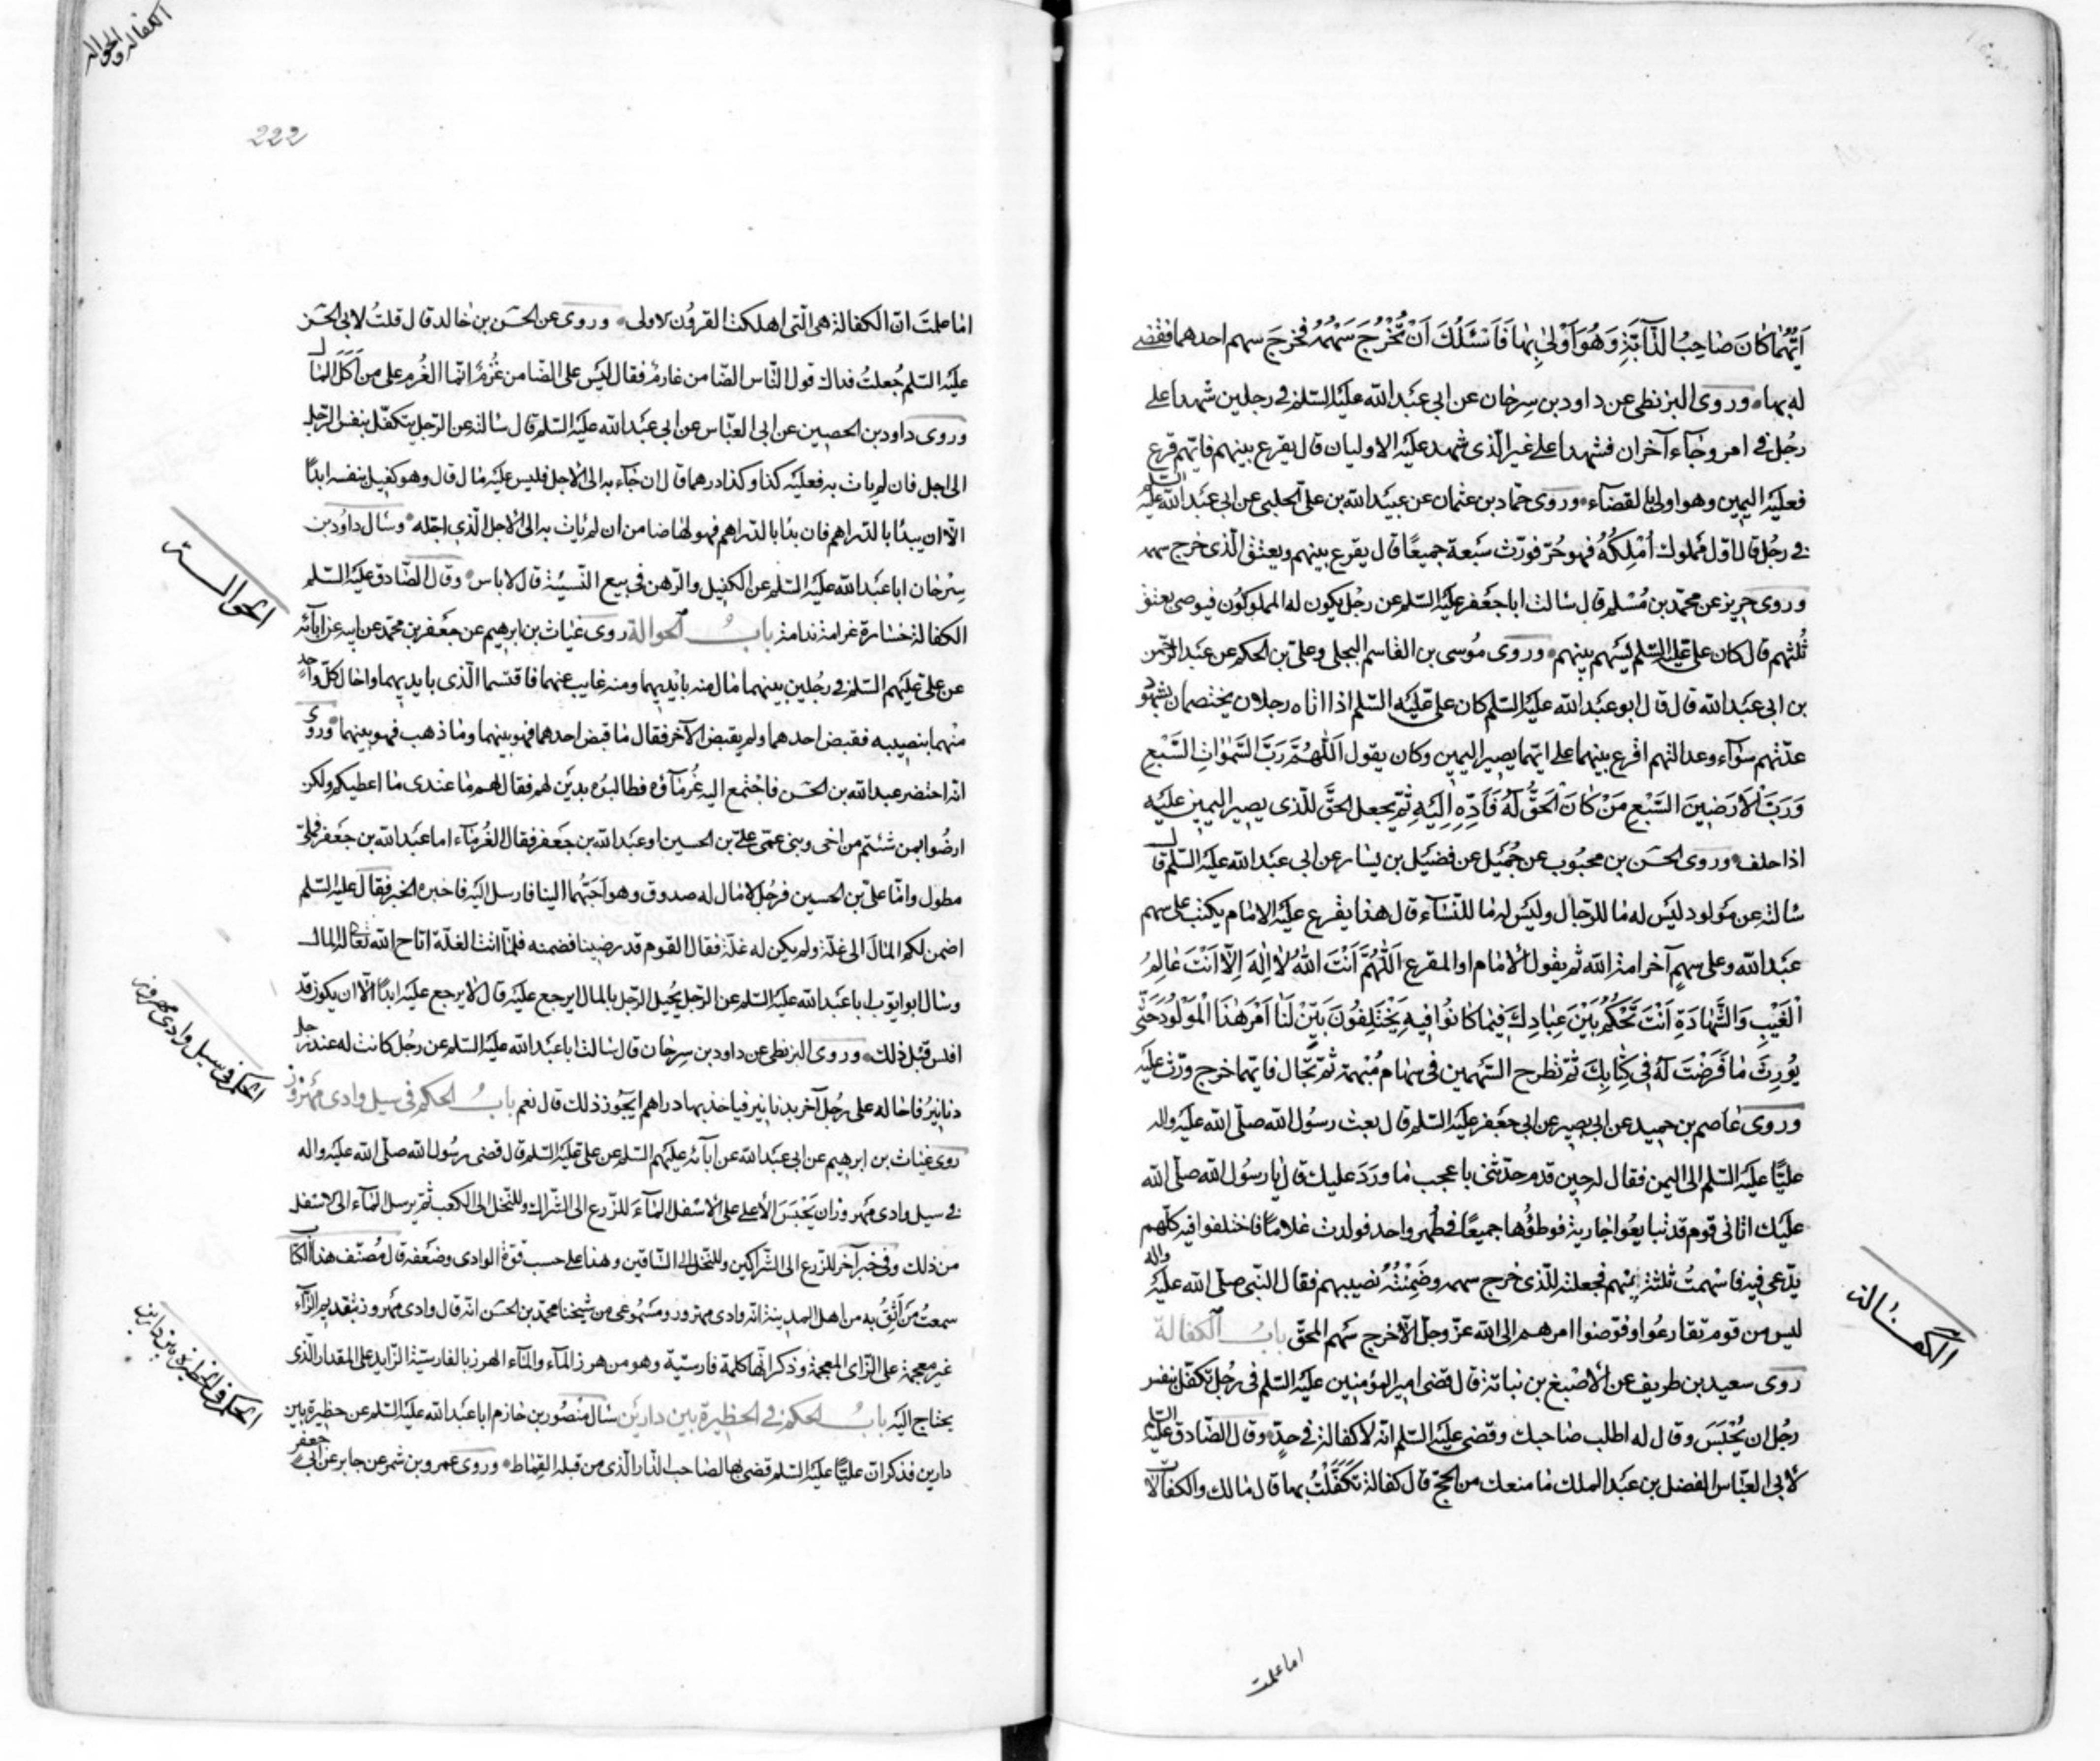 اَيُّهُمٰا كٰانَ صٰاحِبُ الدّٰآبَّةِ وَهُوَ اَوْلىٰ بِهٰا فَاَسْئَلُكَ اَنْ تُخْرُجَ سَهْمُهُ فخرجَ سهم احدهما فقضى
له بها وروى البزنطى عن داود بن سِرحان عن ابى عبَد الله عليَه السّلم فى رجلين شهدا على
رجُل فى امر وجٰآء آخران فشهدا على غير الّذى شهد عليَه الاوليان قال يقرع بينهم فايّهم قرع
فعليَه اليمين وهو اولى بالقضآء وروى حمّاد بن عثمان عن عبَيد الله بن علىّ الحلبى عن ابى عبَد الله عليَه السّلم
فى رجُل قال اوّل مَملوك اُمْلِكهُ فهو حُرّ فورّث سَبعة جميعًا قال يقرع بينهم ويعتق الّذى خرج سهمه
وروى حريز عن محمّد بن مُسْلم قال سٰالت ابا جَعفر عليَه السّلم عن رجُل يكون له المملوكون فيوصى بعتق
ثُلثهم قال كان علىّ عليَه السّلم يُسهم بينهم وروى مُوسى بن القٰاسم البجلى وعلىّ بن الحكم عن عبَد الرّحمن
بن ابى عبَد الله قال قال ابو عبَد الله عليَه السّلم كان علىّ عليَه السّلم اذا اتٰاه رجلان يختصمان بشهود
عدّتهم سوٰآء وعدالتهم اقرع بينهما على ايّهما يصير اليمين وكان يقول اَللّٰهُمَّ رَبَّ السَّمٰوٰاتِ السَّبْعِ
وَرَبَّ الْاَرَضينَ السَّبْعِ مَنْ كٰانَ الْحَقُّ لَهُ فَاَدِّهِ اِلَيَهِ ثمّ يجعل الحَقّ للّذى يصير اليمين عليَه
اذا حلف وروى الحسَن بن محبُوب عن جَميَل عن فضيَل بن يسٰار عن ابى عبَد الله عليَه السّلم قال
سٰالته عن مَولود ليَس له مٰا للرّجال وليَس له مٰا للنّسٰآء قال هذا يقرع عليَه الامٰام يكتب على سهم
عبَد الله وعلى سهم آخر امة الله ثم يقول الامٰام او المقرع اَللّٰهُمَّ اَنْتَ اللّٰهُ لاٰ اِلٰهَ اِلّاٰ اَنْتَ عٰالِمُ
الْغَيْبِ وَالشَّهٰادَةِ اَنْتَ تَحْكُمُ بَيْنَ عِبٰادِكَ فيمٰا كٰانُوا فيهِ يَخْتَلِفُونَ بَيِّنْ لَنٰا اَمْرَ هٰذَا الْمَوْلُودِ حَتّٰى
يُورِثَ مٰا فَرَضْتَ لَهُ فى كِتٰابِكَ ثمّ تطرح السّهمين فى سهٰام مُبْهمة ثمّ تجٰال فايّهما خرج ورّث عليَه
وروى عٰاصم بن حميد عن ابى بصير عن ابى جعَفر عليَه السّلم قال بعث رسُول الله صلّى الله عليَه واله
عليًّا عليَه السّلم الى اليمن فقال له حين قدم حدّثنى باعجب مٰا ورَدَ عليك قال يٰا رسُول الله صلّى الله
عليَك اتٰانى قوم قد تبايعُوا جٰارية فوطئُوها جميعًا فى طُهر واحد فولدت غلامًا فاختلفوا فيه كلّهم
يدّعى فيه فاسهمتُ ثلثة بينهم فجعلته للّذى خرج سهمه وضمّنْتُهُ نصيبهم فقال النّبى صلّى الله عليَه واله
ليس من قوم تقارعُوا وفوّضوا امرهم الى الله عزّ وجلّ الّا خرج سَهم المحقّ بابُ الكفالة
روى سعيد بن طريف عن الاصْبغ بن نباتة قال قضى امير المؤمنين عليَه السّلم فى رجُل تكفّل بنفس
رجُل ان يُحْبَسَ وقال له اطلب صٰاحبك وقضى عليَه السّلم انّه لا كفالة فى حدّ وقال الصّادق عليَه السّلم
لابى العبّاس الفضل بن عبَد الملك مٰا منعك من الحجّ قال كفالة تَكَفَّلْتُ بها قال مٰا لك والكفالات
اما علمت
الكفالة
الكفالة والحوالة
222
امٰا علمتَ انّ الكفالة هى الّتى اهلكت القرُون الاولى وروى عن الحسَن بن خٰالد قال قلتُ لابى الحسَن
عليَه السّلم جُعلتُ فداك قول النّاس الضّامن غارم فقال ليَس على الضّامن غُرْم انّما الغُرم على من اَكَلَ المٰال
وروى داود بن الحصين عن ابى العبّاس عن ابى عبَد الله عليَه السّلم قال سٰالته عن الرّجل يتكفّل بنفس الرّجل
الى اجل فان لم يٰات به فعليَه كذا وكذا درهما قال ان جٰآء به الى الاجل فليس عليَه مٰال قال وهو كفيل بنفسه ابدًا
الّا ان يبدٰا بالدّراهم فان بدٰا بالدّراهم فهو لهٰا ضامن ان لم يٰات به الى الاجل الّذى اجّله وسٰال داوُد بن
سِرْحٰان ابا عبَد الله عليَه السّلم عن الكفيل والرّهن فى بيع النّسيئة قال لا باس وقال الصّادق عليَه السّلم
الكفالة خسٰارة غرامة ندامة بابُ الحوالة روى غيٰاث بن ابرهيم عن جَعفر بن محمّد عن ابيه عن ابآئه
عن علىّ عليَهم السّلم فى رجُلين بينهما مٰال منه بايديهما ومنه غايب عنهما فاقتسما الّذى بايديهما واحٰال كلّ واحدٍ
منهما بنصيبه فقبض احدهما ولم يقبض الآخر فقال مٰا قبض احدهما فهو بينهما ومٰا ذهب فهو بينهما وروى
انّه احتضر عبد الله بن الحسَن فاجْتمع اليه غُرمٰآؤه فطالبُوه بديَن لهم فقال لهم مٰا عندى مٰا اعطيكم ولكن
ارضُوا بمن شئتم من اخى وبنى عمّى علىّ بن الحسين او عبَد الله بن جَعفر فقال الغُرمٰآء اما عبَد الله بن جَعفر فملىّ
مطول وامّا علىّ بن الحسين فرجُل لا مٰال له صدوق وهو اَحَبّهُما الينا فارسل اليَه فاخبره الخبر فقال عليَه السّلم
اضمن لكم المٰال الى غلّة ولم يكن له غلّة فقال القوم قد رضينا فضمنه فلمّا اتت الغلّة اتاح الله تعالى له المال
وسٰال ابو ايّوب ابا عبَد الله عليَه السّلم عن الرّجل يُحيل الرّجل بالمال ايرجع عليَه قال لا يرجع عليَه ابدًا الّا ان يكون قد
افلس قبْل ذلك وروى البزنطى عن داود بن سِرحٰان قال سٰالت ابا عبَد الله عليَه السّلم عن رجُل كانت له عند رجل
دنٰانيرُ فاحٰاله على رجُل آخر بدنٰانير فياخذ بها دراهم ايجُوز ذلك قال نعم بابُ الحكم فى سيل وادى مَهْزُور
روى غيٰاث بن ابرهيم عن ابى عبَد الله عن ابآئه عليَهم السّلم عن علىّ عليَه السّلم قال قضى رسُول الله صلّى الله عليَه واله
فى سيل وادى مَهزور ان يَحْبَسَ الاعلى على الاسْفل المٰآء للزّرع الى الشّراك وللنّخل الى الكعب ثمّ يرسل المٰآء الى الاسْفل
من ذلك وفى خبر آخر للزّرع الى الشّراكين وللنّخل الى السّاقين وهذا على حسب قوّة الوادى وضعَفه قال مُصنّف هذا الكتاب
سمعتُ مَن اَثِقُ به من اهل المدينة انّه وادى مهزور ومسَمُوعى من شيخنا محمّد بن الحسَن انّه قال وادى مَهروز بتقديم الرّآء
غير معجمة على الزّاى المعجمة وذكر انّها كلمة فارسيّة وهو من هرز المآء والمآء الهرز بالفارسيّة الزّايد على المقدار الّذى
يحتاج اليَه بابُ الحكم فى الحظيرة بين دارين سٰال منصُور بن حٰازم ابا عبَد الله عليَه السّلم عن حظيرة بين
دارين فذكر انّ عليًّا عليَه السّلم قضى بها لصٰاحب الدّار الّذى من قبله القِمٰاط وروى عمرو بن شمر عن جابر عن ابى جعفر
الحوالة
الحكم فى سيل وادى مهزور
الحكم فى الحظيرة بين دارين